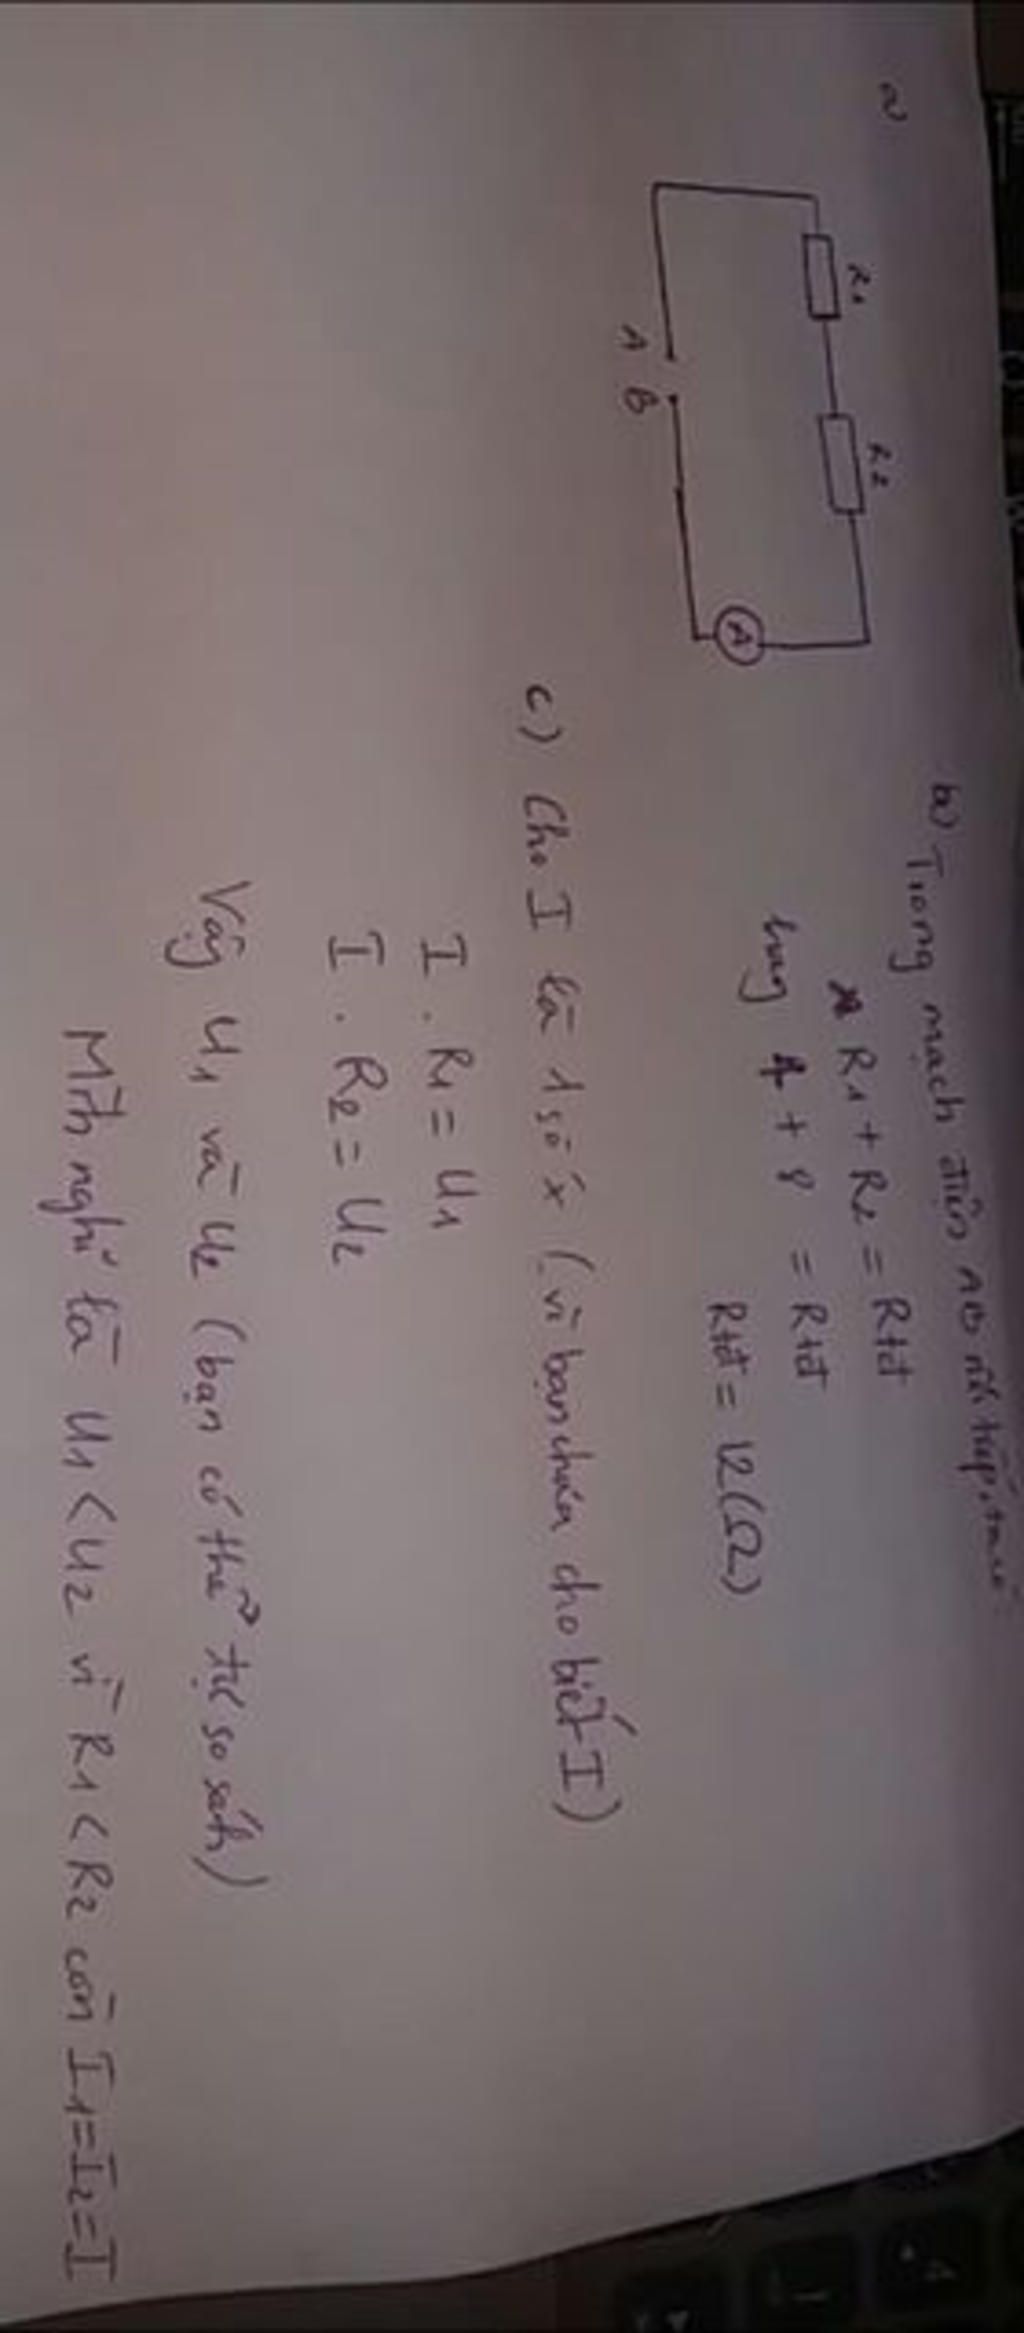 a)
R1 R2
A
A B
b) Trong mạch điện AB nối tiếp, ta có:
R1 + R2 = Rtđ
hay 4 + 8 = Rtđ
Rtđ = 12(Ω)
c) Cho I là 1 số x (vì bạn chưa cho biết I)
I . R1 = U1
I . R2 = U2
Vậy U1 và U2 (bạn có thể tự so sánh)
Mình nghĩ là U1 < U2 vì R1 < R2 còn I1 = I2 = I